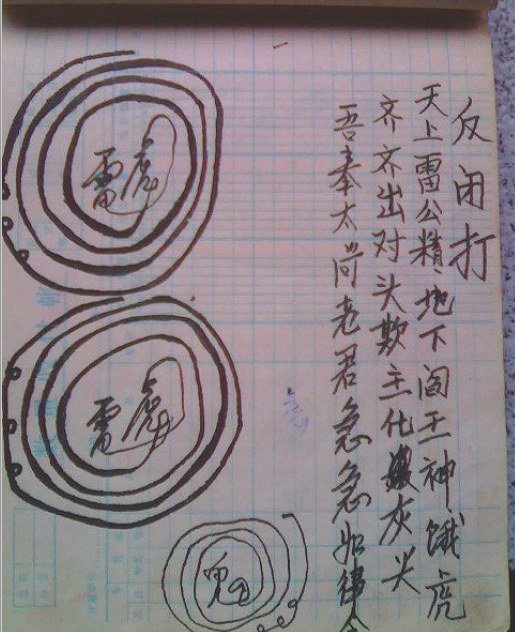 反闭打
天上雷公精地下阎王神饿虎
齐齐出对头欺主化灰尖
吾奉太尚老君急急如律令
雷虎
雷虎
鬼